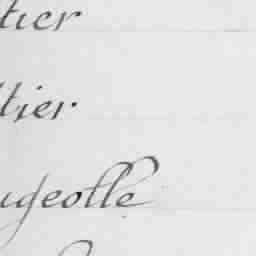 tier
tier
ugeolle